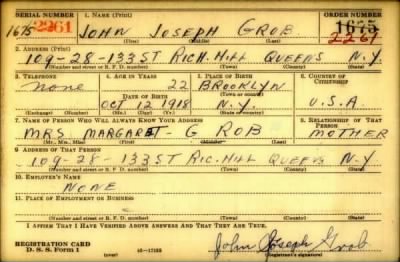 SERIAL NUMBER 1. NAME (Print) ORDER NUMBER
1675 2261 JOHN JOSEPH GROB 1675
2261
(First) (Middle) (Last)
2. ADDRESS (Print)
109-28-133 ST RICH. HILL QUEENS N.Y.
(Number and street or R. F. D. number) (Town) (County) (State)
3. TELEPHONE 4. AGE IN YEARS 5. PLACE OF BIRTH 6. COUNTRY OF CITIZENSHIP
NONE 22 BROOKLYN
DATE OF BIRTH (Town or county)
OCT 12 1918 N.Y. U.S.A.
(Exchange) (Number) (Mo.) (Day) (Yr.) (State or country)
7. NAME OF PERSON WHO WILL ALWAYS KNOW YOUR ADDRESS 8. RELATIONSHIP OF THAT PERSON
MRS MARGARET GROB MOTHER
(Mr., Mrs., Miss) (First) (Middle) (Last)
9. ADDRESS OF THAT PERSON
109-28-133 ST RIC. HILL QUEENS N.Y
(Number and street or R. F. D. number) (Town) (County) (State)
10. EMPLOYER'S NAME
NONE
11. PLACE OF EMPLOYMENT OR BUSINESS
(Number and street or R. F. D. number) (Town) (County) (State)
I AFFIRM THAT I HAVE VERIFIED ABOVE ANSWERS AND THAT THEY ARE TRUE.
REGISTRATION CARD
D. S. S. Form 1 John Joseph Grob
(Registrant's signature)